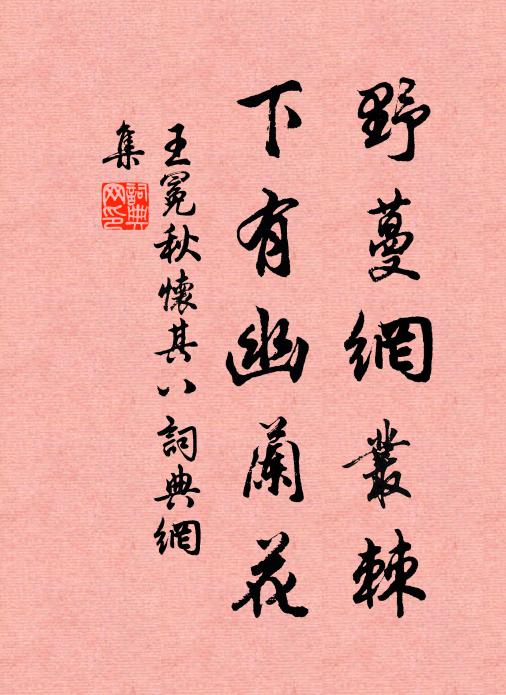 野蔓網叢棘
下有幽蘭花
王冕秋懷其八詞典網
集
詞典
网印